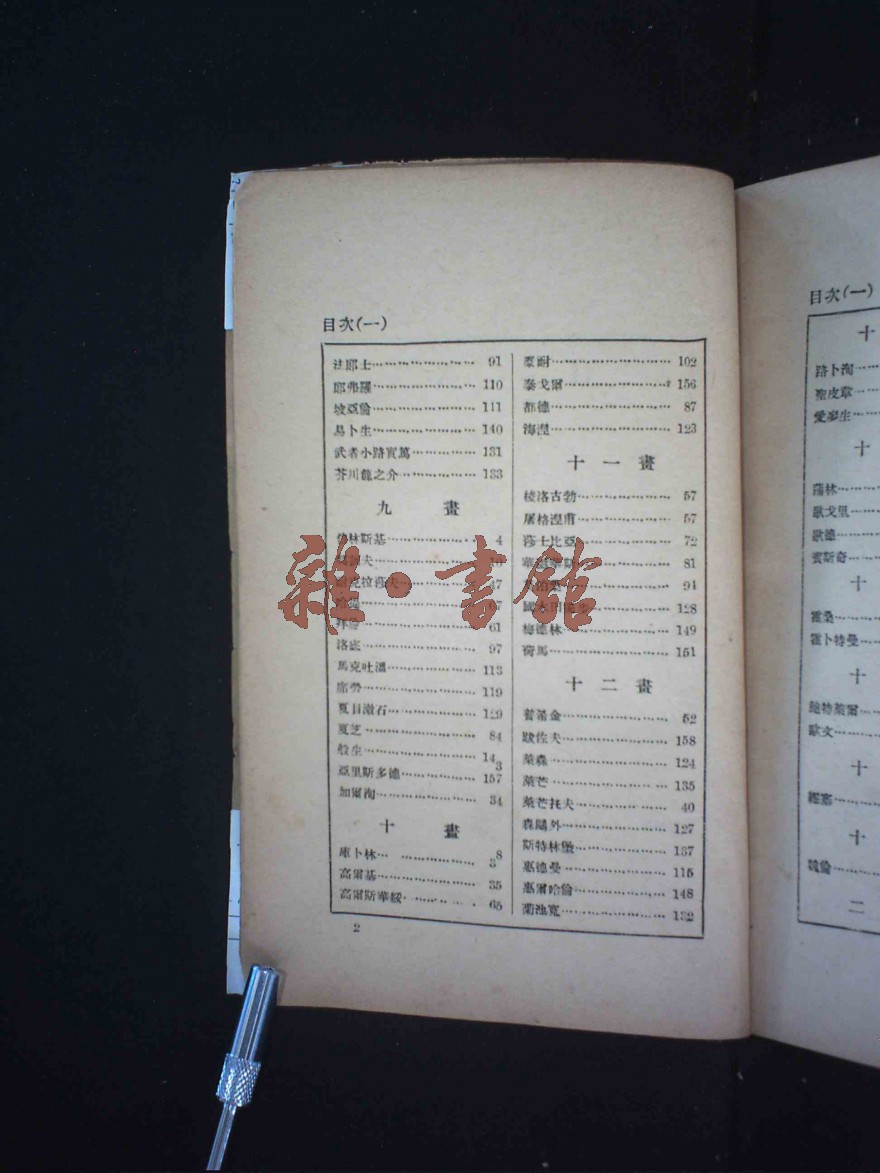 目次(一)
法郎士 91
耶弗羅 110
坡亞倫 111
易卜生 140
武者小路實篤 131
芥川龍之介 133
九 畫
林斯基 4
夫
克拉莎夫 47
拜 61
洛 97
馬克吐溫 113
席勞 119
夏目漱石 129
夏芝 84
般生 143
亞里斯多德 157
加爾洵 34
十 畫
庫卜林 38
高爾基 35
高爾斯華綏 65
102
泰戈爾 156
都德 87
海涅 123
十一畫
棱洛古勃 57
屠格涅甫 57
莎士比亞 72
華 81
94
國木田 128
梅德林 149
荷馬 151
十二畫
普希金 52
跋佐夫 158
萊森 124
萊芒 135
萊芒托夫 40
森鷗外 127
斯特林堡 137
惠德曼 115
惠爾哈倫 148
菊池寬 132
2
雜·書館
目次(一)
十
路卜洵
聖皮韋
愛麥生
十
蒲林
歌戈里
歌德
賓斯奇
十
霍桑
霍卜特曼
十
鮑特萊爾
歐文
十
十
魏倫
二